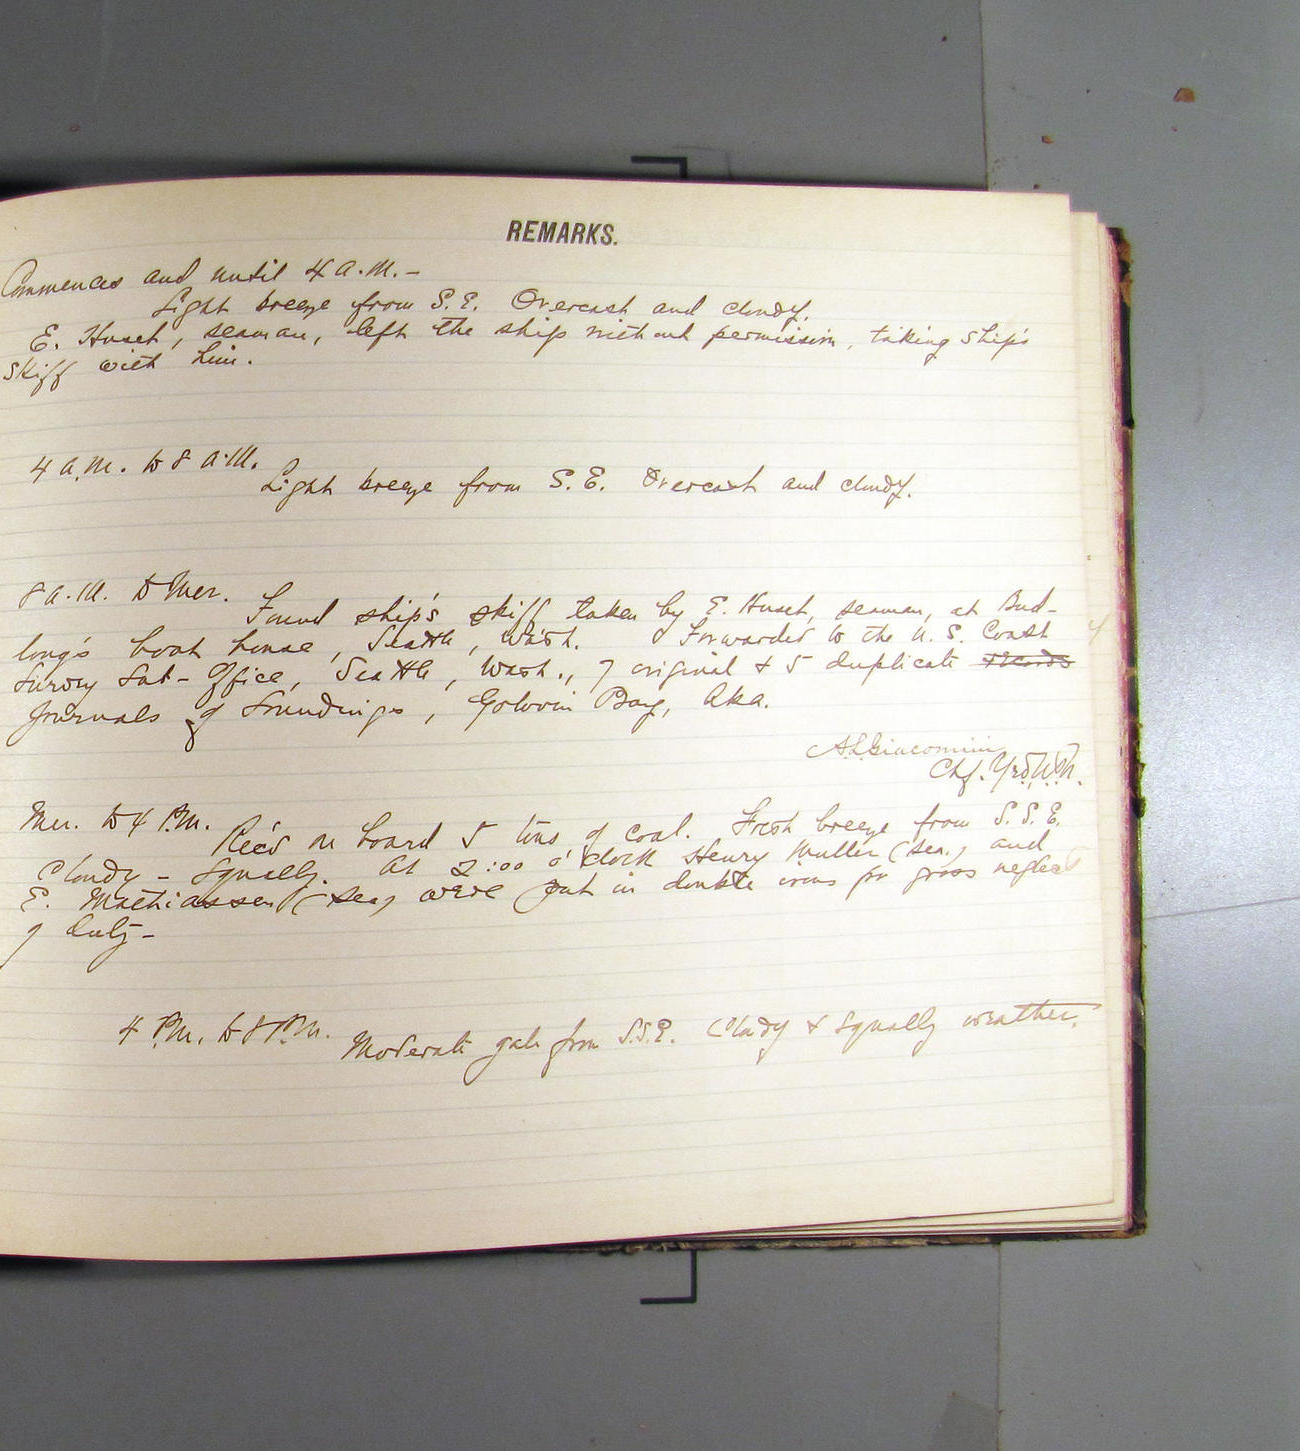 REMARKS.
Commences and until 4 a.m.-
Light breeze from S.E. Overcast and cloudy.
E. Huset, seaman, left the ship without permission, taking ship's
skiff with him.
4 a.m. to 8 a.m.
Light breeze from S.E. Overcast and cloudy.
8 a.m. to Mer.
Found ship's skiff taken by E. Huset, seaman, at Bud-
long's boat house, Seattle, Wash. Forwarded to the U.S. Coast
Survey Sub-Office, Seattle, Wash., 7 original & 5 duplicate records
Journals of Soundings, Golovin Bay, Aka.
A.L. Giacomini
Chf. Yeo, U.S.N.
Mer. to 4 P.M.
Rec'd on board 5 tons of coal. Fresh breeze from S.S.E.
Cloudy - Squally. At 2:00 o'clock Henry Muller (sea.) and
E. Mathiassen (sea) were put in double irons for gross neglect
of duty-
4 P.M. to 8 P.M.
Moderate gale from S.S.E. Cloudy & squally weather.